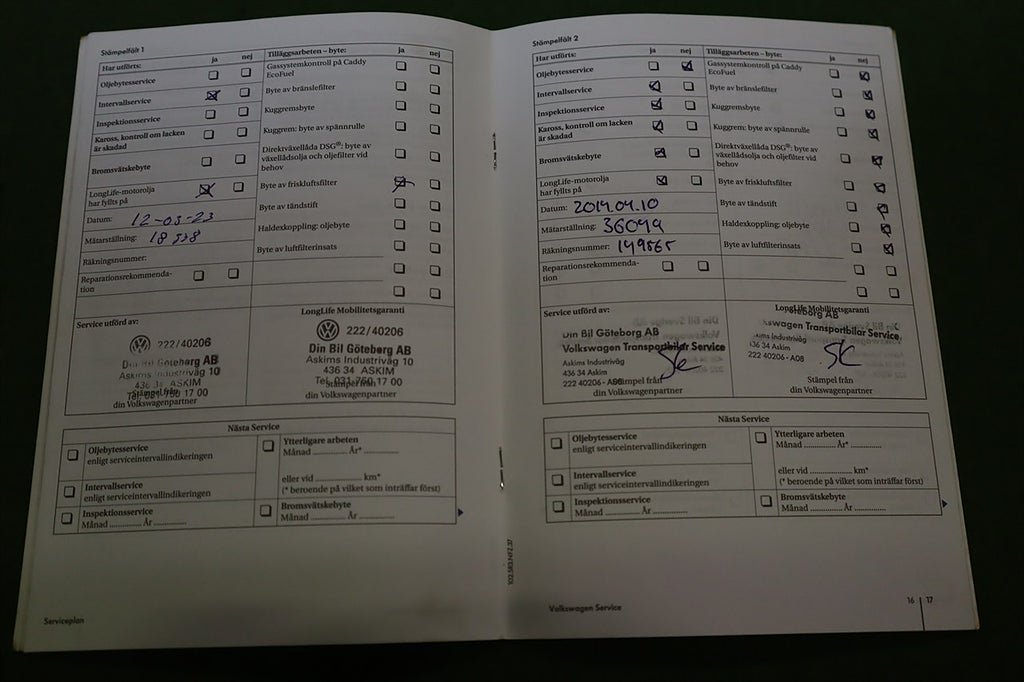 Stämpelfält 1
Har utförts: ja nej
Oljebytesservice
Intervallservice
Inspektionsservice
Kaross, kontroll om lacken
är skadad
Bromsvätskebyte
LongLife-motorolja
har fyllts på
Datum: 12-03-23
Mätarställning:
Räkningsnummer:
Reparationsrekommenda-
tion
Tilläggsarbeten – byte: ja nej
Gassystemkontroll på Caddy
EcoFuel
Byte av bränslefilter
Kuggremsbyte
Kuggrem: byte av spännrulle
Direktväxellåda DSG®: byte av
växellådsolja och oljefilter vid
behov
Byte av friskluftsfilter
Byte av tändstift
Haldexkoppling: oljebyte
Byte av luftfilterinsats
Service utförd av:
222/40206
Din Bil Göteberg AB
Askims Industriväg 10
436 34 ASKIM
Tel. 031-760 17 00
Stämpel från
din Volkswagenpartner
LongLife Mobilitetsgaranti
222/40206
Din Bil Göteberg AB
Askims Industriväg 10
436 34 ASKIM
Tel. 031-760 17 00
Stämpel från
din Volkswagenpartner
Nästa Service
Oljebytesservice
enligt serviceintervallindikeringen
Intervallservice
enligt serviceintervallindikeringen
Inspektionsservice
Månad ............ År ............
Ytterligare arbeten
Månad ............ År* ............
eller vid ............ km*
(* beroende på vilket som inträffar först)
Bromsvätskebyte
Månad ............ År ............
Serviceplan
Stämpelfält 2
Har utförts: ja nej
Oljebytesservice
Intervallservice
Inspektionsservice
Kaross, kontroll om lacken
är skadad
Bromsvätskebyte
LongLife-motorolja
har fyllts på
Datum: 2014.04.10
Mätarställning: 36049
Räkningsnummer: 149565
Reparationsrekommenda-
tion
Tilläggsarbeten – byte: ja nej
Gassystemkontroll på Caddy
EcoFuel
Byte av bränslefilter
Kuggremsbyte
Kuggrem: byte av spännrulle
Direktväxellåda DSG®: byte av
växellådsolja och oljefilter vid
behov
Byte av friskluftsfilter
Byte av tändstift
Haldexkoppling: oljebyte
Byte av luftfilterinsats
Service utförd av:
Din Bil Göteborg AB
Volkswagen Transportbilar Service
Askims Industriväg
436 34 Askim
222 40206 - A08
Stämpel från
din Volkswagenpartner
LongLife Mobilitetsgaranti
Göteborg AB
Volkswagen Transportbilar Service
Askims Industriväg
436 34 Askim
222 40206 - A08
Stämpel från
din Volkswagenpartner
Nästa Service
Oljebytesservice
enligt serviceintervallindikeringen
Intervallservice
enligt serviceintervallindikeringen
Inspektionsservice
Månad ............ År ............
Ytterligare arbeten
Månad ............ År* ............
eller vid ............ km*
(* beroende på vilket som inträffar först)
Bromsvätskebyte
Månad ............ År ............
102.5R3.NFZ.37
Volkswagen Service
16 17